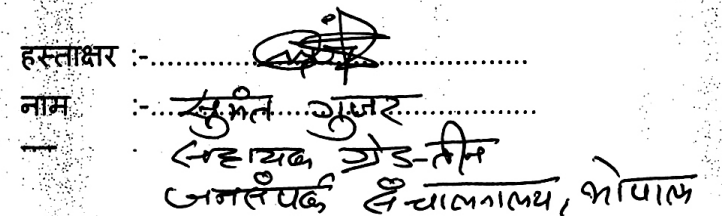 हस्ताक्षर :-........................
नाम :-...सुमंत गुजर...........
सहायक ग्रेड-तीन
जनसंपर्क संचालनालय, भोपाल